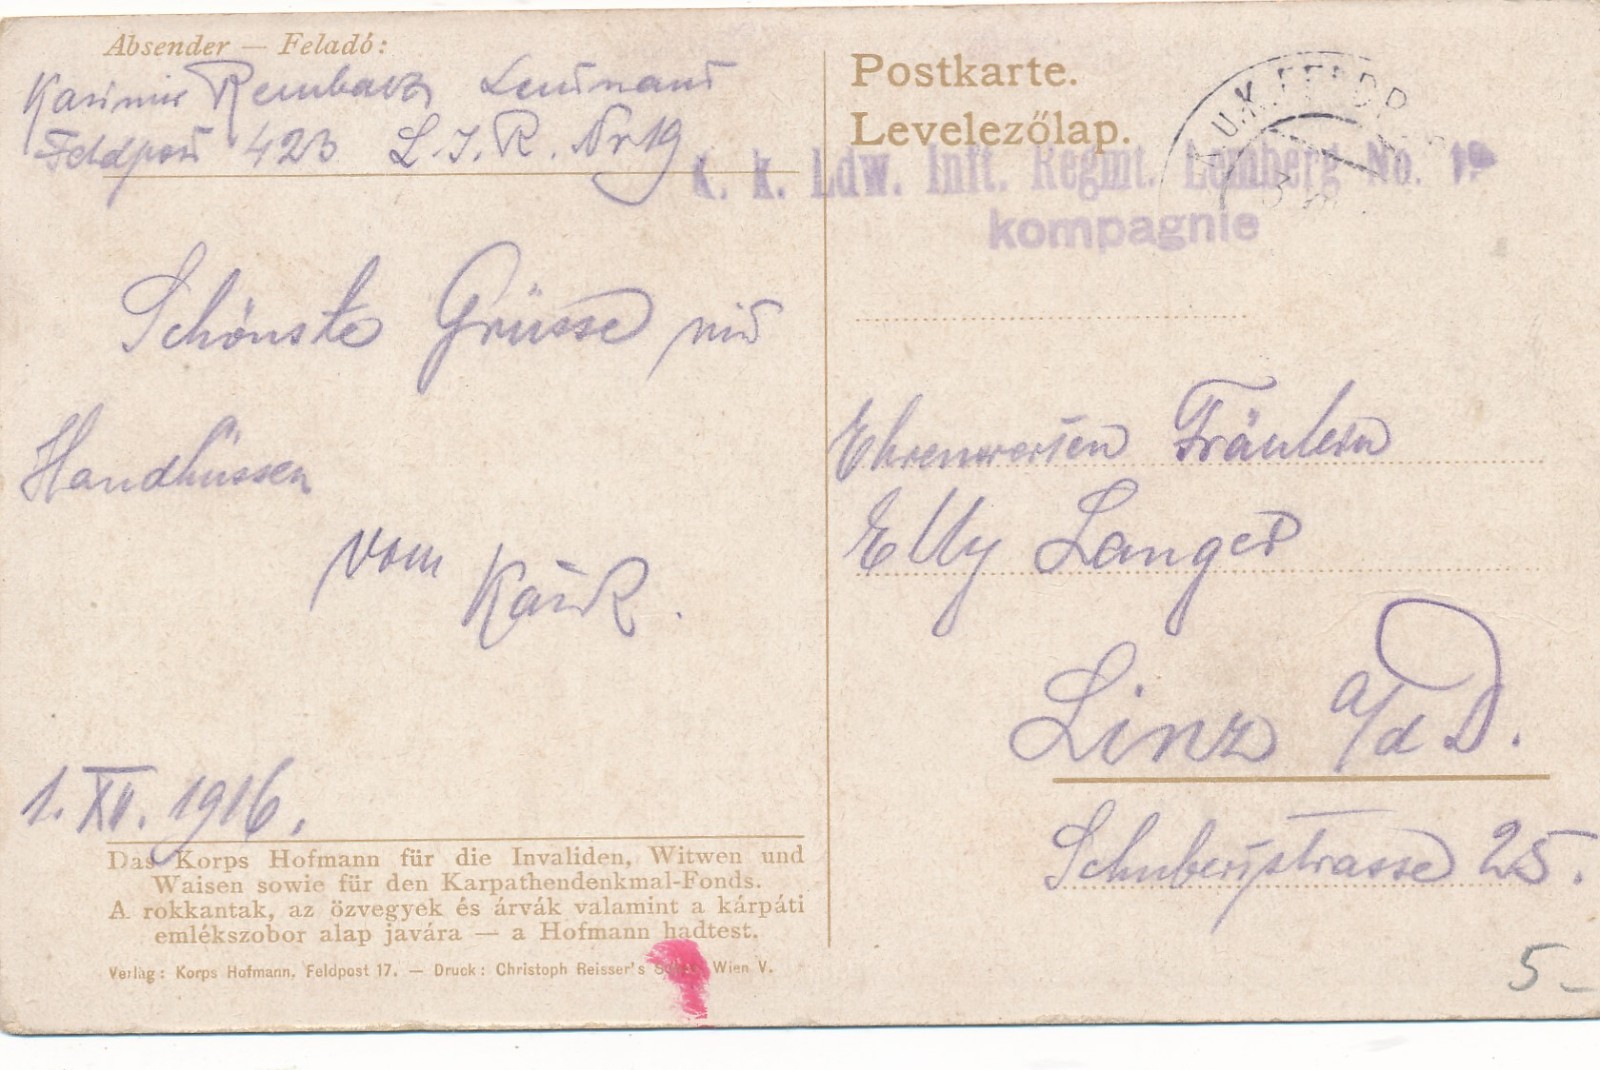 Absender — Feladó:
Kasimir Leutnant
Feldpost 423 L.I.R. Nr 19
Schönste Grüsse mit
Handküssen
vom
1. XII. 1916.
Das Korps Hofmann für die Invaliden, Witwen und
Waisen sowie für den Karpathendenkmal-Fonds.
A rokkantak, az özvegyek és árvák valamint a kárpáti
emlékszobor alap javára — a Hofmann hadtest.
Verlag: Korps Hofmann, Feldpost 17. — Druck: Christoph Reisser's Wien V.
Postkarte.
Levelezőlap.
K.U.K. FELDP
K. k. Ldw. Inft. Regmt. Lemberg No. 19
kompagnie
Ehrenwerten Fräulein
Elly Langer
Linz a/d D.
Schubertstrasse 25.
5-